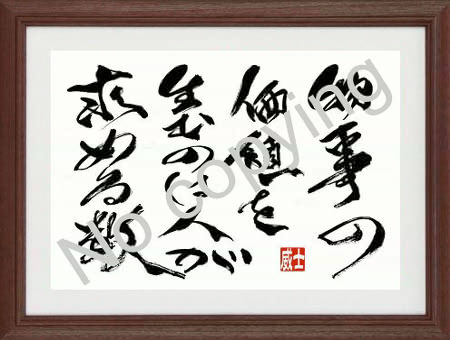 物事の
価値を
のは人が
求める数
威士
No copying